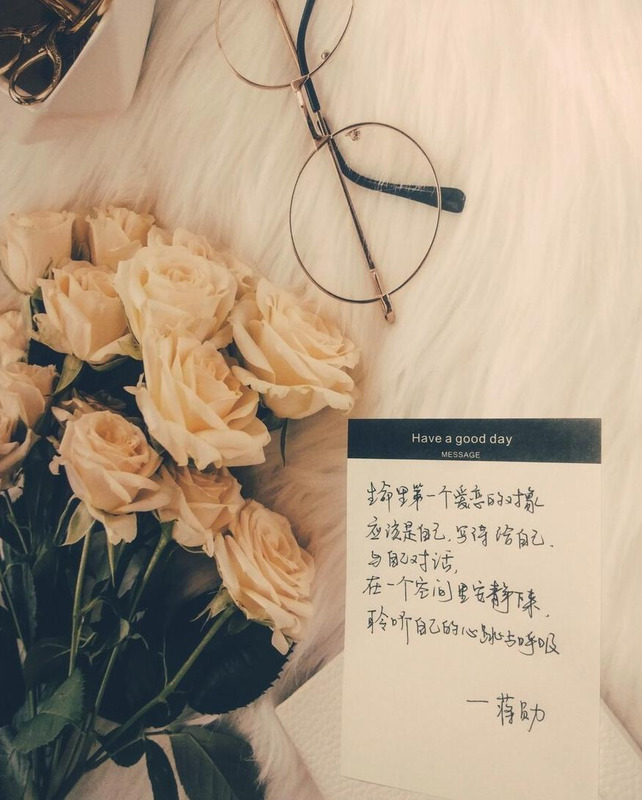 Have a good day
MESSAGE
生命里第一个爱恋的对象
应该是自己.写诗给自己.
与自己对话,
在一个空间里安静下来,
聆听自己的心跳与呼吸
—蒋勋